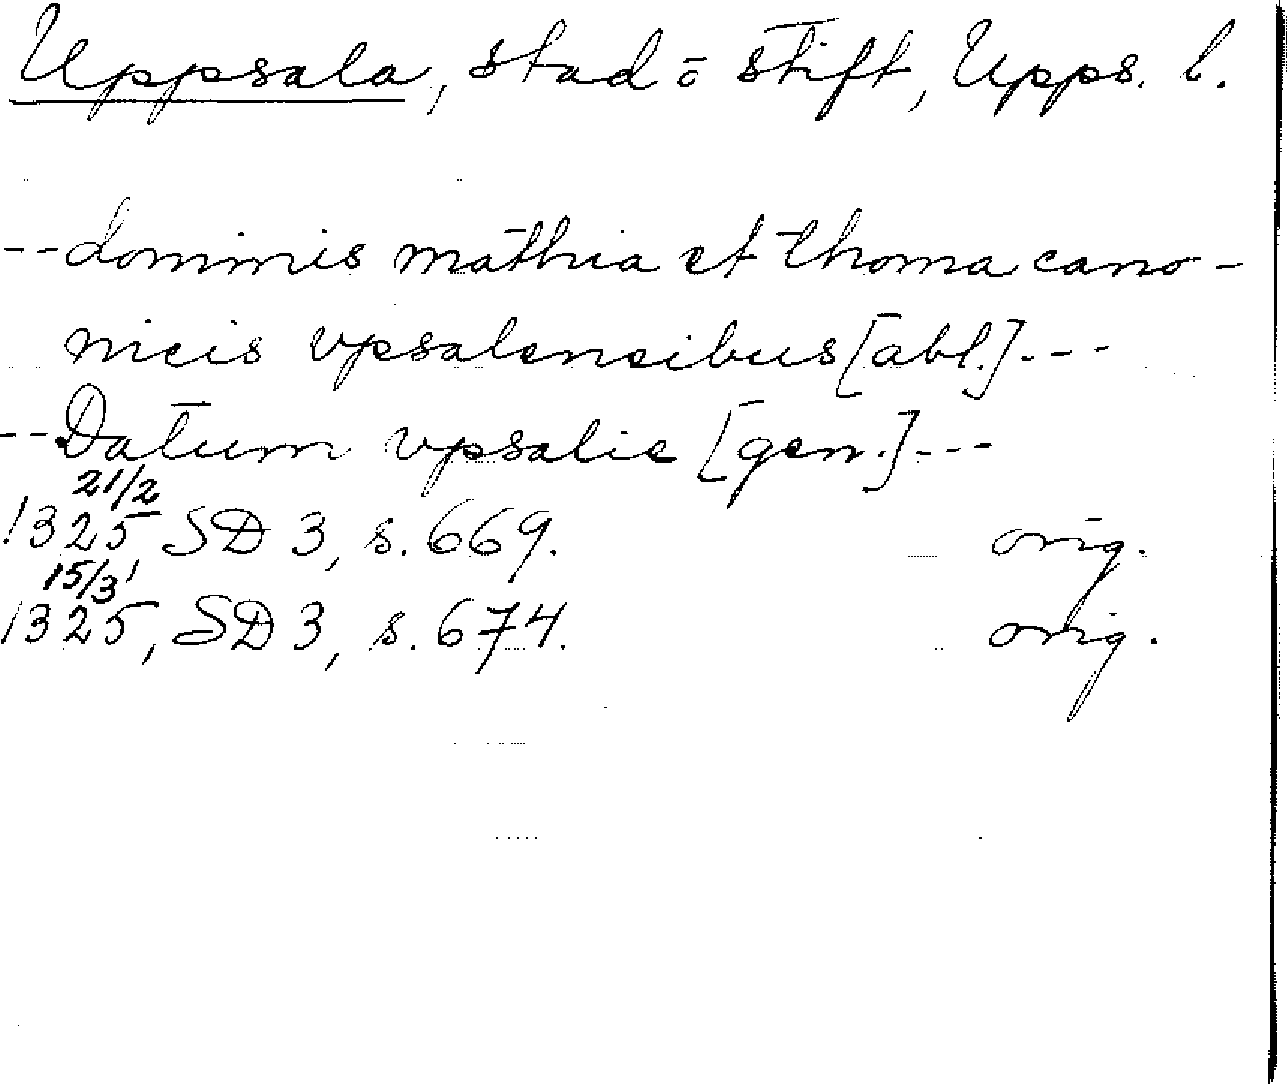 Uppsala, stad o stift, Upps. l.
--dominis mathia et thoma cano-
nicis vpsalensibus [abl.]---
--Datum vpsalie [gen.]---
21/2
1325 SD 3, s. 669. orig.
15/3
1325, SD 3, s. 674. orig.